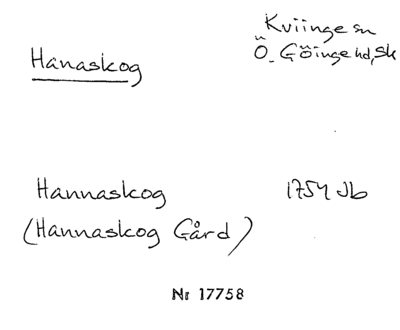 Kviinge sn
Hanaskog
Ö. Göinge hd, Sk
Hannaskog 1754 Jb
(Hannaskog Gård)
Nr 17758